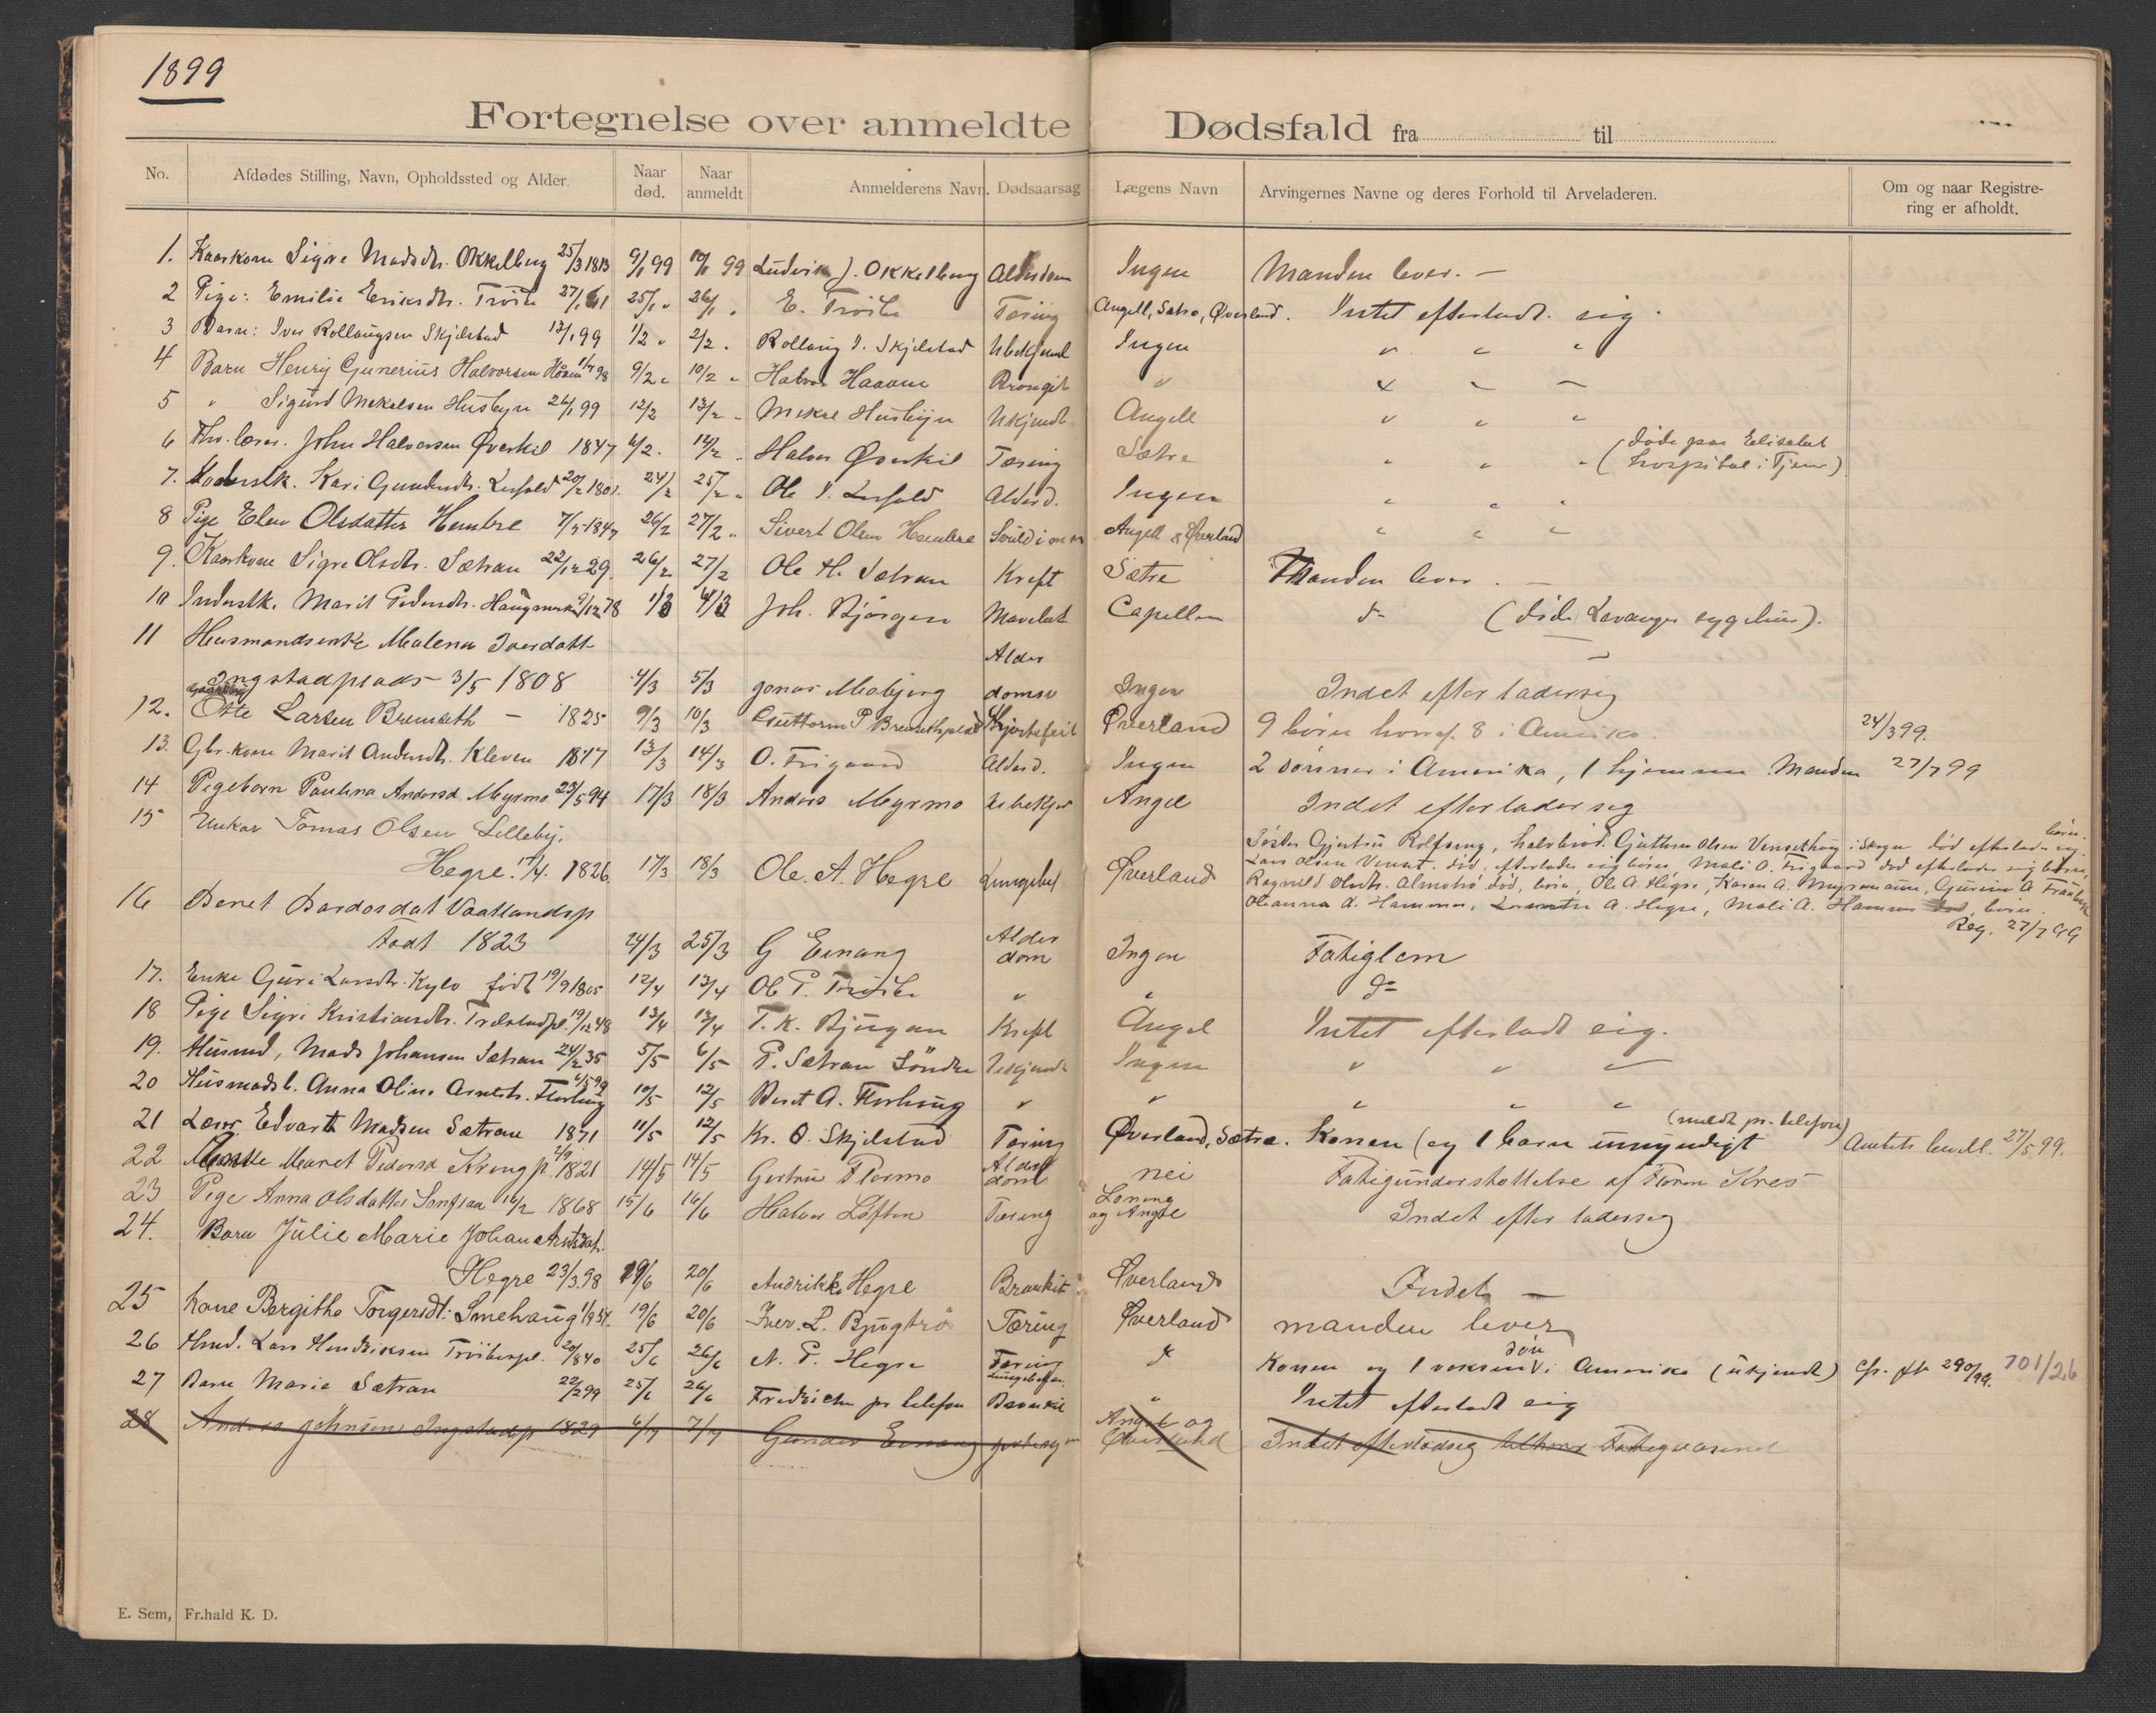 1899
Fortegnelse over anmeldte Dødsfald fra til
No. Afdødes Stilling, Navn, Opholdssted og Alder. Naar død. Naar anmeldt Anmelderens Navn. Dødsaarsag Lægens Navn Arvingernes Navne og deres Forhold til Arveladeren. Om og naar Registrering er afholdt.
1. Kaarkone Sigre Madsdtr. Okkelberg 25/3 1813 9/1 99 10/1 99 Ludvik J. Okkelberg Alderdom Ingen Manden lever. —
2 Pige: Emilie Eriksdtr. Trøite 27/1 61 25/1 " 26/1 " E. Trøite Tæring Angell, Sætre, Øverland. Intet efterladt sig.
3 Barn: Iver Rollaugsen Skjelstad 13/1 99 1/2 " 2/2 " Rollaug I. Skjelstad Ubekjendt Ingen " " "
4 Barn Henry Gunerius Halvorsen Haaen 98 9/2 " 10/2 " Halvor Haaven Brongit " " " "
5 " Sigurd Mekalsen Husbyn 26/1 99 12/2 13/2 " Mekal Husbyn Ukjendt Angell " " "
6 Fhv. lærer. John Halvorsen Øverkil 1847 6/2. 14/2 " Halvor Øverkil Tæring Sætre " " " (døde paa Elisabet
hospital i Tjem)
7. Kari Gundersdtr. 20/2 1801. 24/2 25/2 " Ole I. Alderd. Ingen " " "
8 Pige Elen Olsdatter Hembre 1847 26/2 27/2 " Sivert Olsen Hembre Angell & Øverland " " "
9. Kaarkone Sigre Olsdtr. Sætran 22/12 29. 26/2 27/2 Ole H. Sætran Kreft Sætre Manden lever. —
10 Inderstk. Marit Pedersdtr. 9/12 78 1/3 4/3 Joh. Bjørgen Capellen do (døde Levanger sygehus).
11 Husmandsenke Malena Iversdatt
Ingstadplads 3/5 1808 4/3 5/3 Jonas Mebjerg Alder domsv Ingen Indet efter ladersig
12. Gaardbrg Ole Larsen Bremseth — 1825 9/3 10/3 Guttorm P Bremsethplad Hjertefeil Øverland 9 børn hvoraf 8 i Amerika. 24/3 99.
13. Gbr. kone Marit Andersdtr. Kleven 1847 13/3 14/3 O. Frigaard Alderd. Ingen 2 sønner i Amerika, 1 hjemme Manden 27/7 99
14 Pigebarn Paulina Andersd Myrmo 23/5 94 17/3 18/3 Anders Myrmo Angel Indet efterlader sig
15 Unkar Tomas Olsen Lilleby,
Hegre. 17/4. 1826. 17/3 18/3 Ole. A. Hegre Øverland Søster Gjertru Halvbrod. Guttorm Olsen i Skogn død efterlader sig børn.
Lars Olsen død, efterlader sig børn, Mali O. Frigaard død efterlader sig børn,
Ragnild Olsdtr. Almohø død, børn, Ole A. Hegre, Karen A. Gurine A
Oleanna A. Hammer, A. Hegre, Mali A. Hammer død, børn.
Reg. 27/7 99
16 Beret Bardosdat Vaatlandsp
født 1823 24/3 25/3 G Einang Alder dom Ingen Fatiglem
17. Enke Guri Larsdtr. Kylo født 19/9 1805 12/4 13/4 Ol P. Trøite " " do
18 Pige Sigri Kristiansdtr. Trelstadpl. 19/12 48 13/4 13/4 T. K. Bjugan Kreft Angel Intet efterladt sig.
19. Husmd, Mads Johansen Sætran 24/2 35 5/5 6/5 P. Sætran Søndre Ukjendt Ingen " " "
20 Husmads b. Anna Oline Florhaug 4/5 99 10/5 12/5 Beret A. Florhaug " " " " "
21 Lærer Edvart Madsen Sætran 1871 11/5 12/5 Kr. O. Skjelstad Tæring Øverland, Sætre. Konen (og 1 barn umyndigt (meldt pr. telefon) Amtets bevill. 27/5 99.
22 Enke Maret Pedersd Kringp 1821 14/5 14/5 Gertru Flormo Alder dom nei Fatigunderstøttelse af Floren Kres
23 Pige Anna Olsdatter 16/2 1868 15/6 16/6 Halvor Løften Tæring og Angel Indet efter ladersig
24. Barn Julie Marie Johan
Hegre 23/3.98 19/6 20/6 Andrikke Hegre Bronkit Øverland Indet —
25 Kone Bergitha Torgersdt. Smehaug 19/6 20/6 Iver. L. Bjugtrø Tæring Øverland manden lever
26 Hmd. Lars Hendriksen Trøitespl. 20/8 40 25/6 26/6 N. P. Hegre Tæring do Konen og 1 voksen søn i Amerika (ukjendt) 290/99. 701/26
27 Barn Marie Sætran 22/2 99 25/6 26/6 Fredrichs pr telefon " Intet efterladt sig
28 Anders Johnsen Ingstadp 1829 6/7 7/7 Gunder Einang Angel og Øverland Indet efterladsig tilhører Fatigvæsend
E. Sem, Fr.hald K. D.